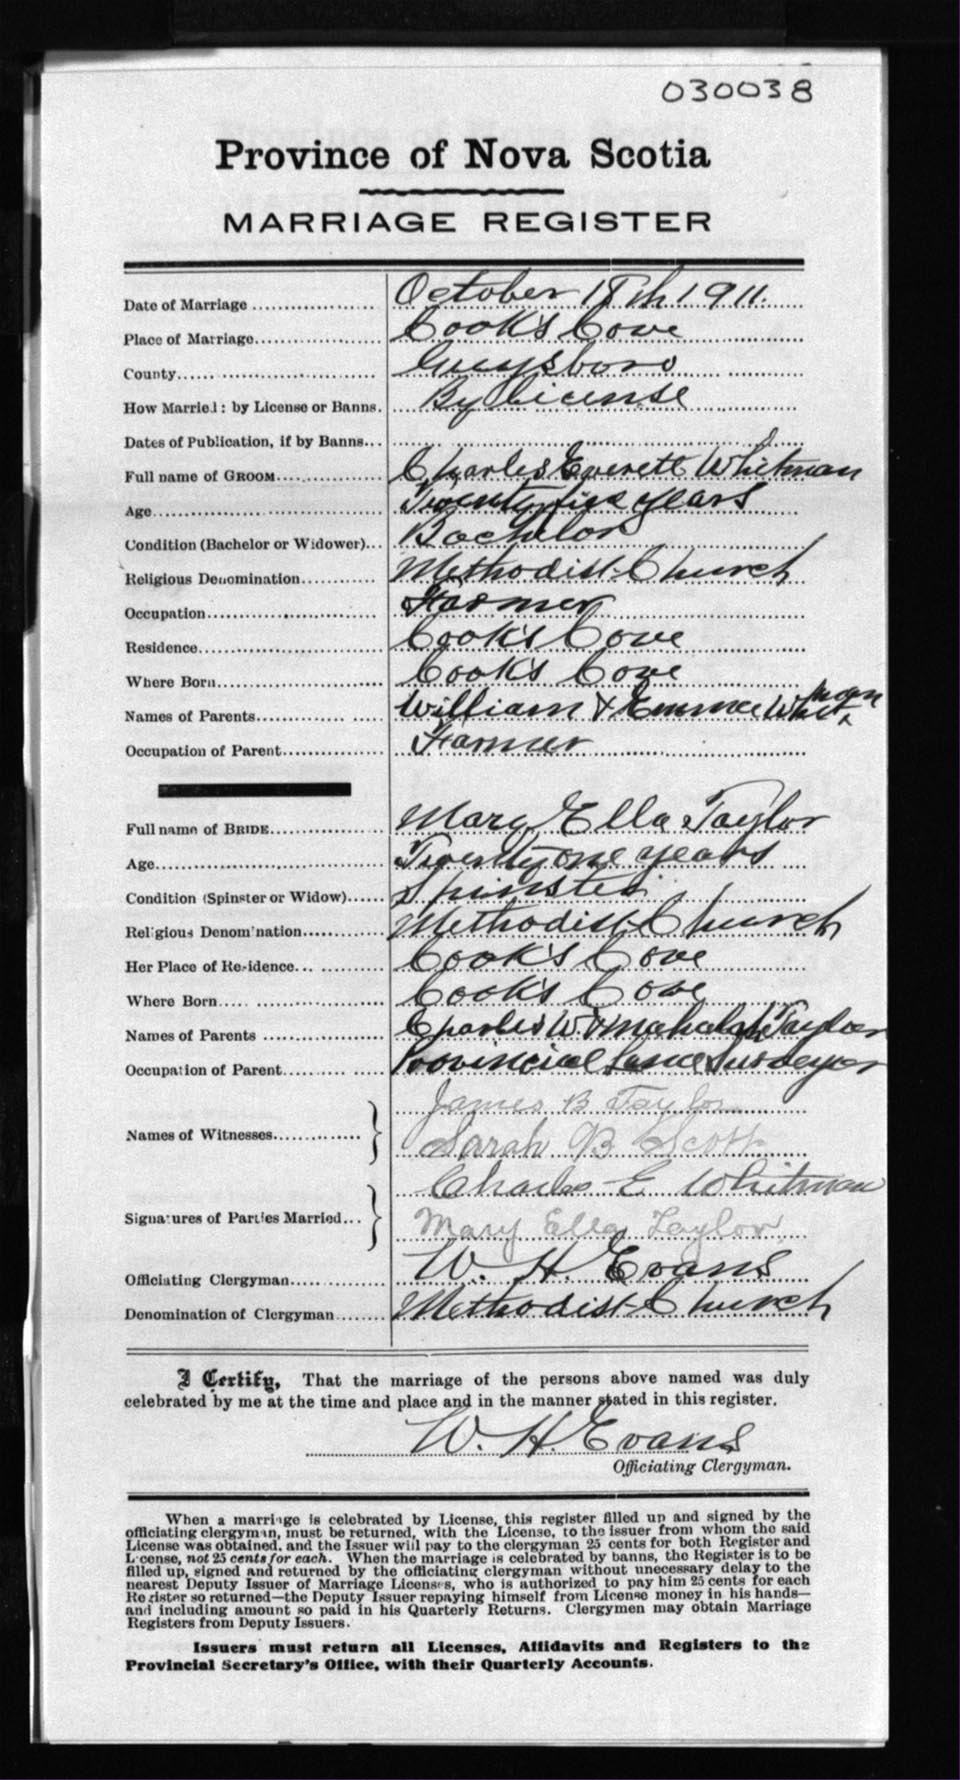 030038
Province of Nova Scotia
MARRIAGE REGISTER
Date of Marriage October 18th 1911.
Place of Marriage Cook's Cove
County Guysboro
How Married: by License or Banns. By License
Dates of Publication, if by Banns
Full name of GROOM Charles Everett Whitman
Age Twenty five years
Condition (Bachelor or Widower) Bachelor
Religious Denomination Methodist Church
Occupation Farmer
Residence Cook's Cove
Where Born Cook's Cove
Names of Parents William & Emma Whitman
Occupation of Parent Farmer
Full name of BRIDE Mary Ella Taylor
Age Twenty one years
Condition (Spinster or Widow) Spinster
Religious Denomination Methodist Church
Her Place of Residence Cook's Cove
Where Born Cook's Cove
Names of Parents Charles W. & Mahalah Taylor
Occupation of Parent Provincial Land Surveyor
Names of Witnesses James B Taylor
Sarah B Scott
Signatures of Parties Married Charles E Whitman
Mary Ella Taylor
Officiating Clergyman W. H. Evans
Denomination of Clergyman Methodist Church
I Certify, That the marriage of the persons above named was duly
celebrated by me at the time and place and in the manner stated in this register.
W. H. Evans
Officiating Clergyman.
When a marriage is celebrated by License, this register filled up and signed by the
officiating clergyman, must be returned, with the License, to the issuer from whom the said
License was obtained, and the Issuer will pay to the clergyman 25 cents for both Register and
License, not 25 cents for each. When the marriage is celebrated by banns, the Register is to be
filled up, signed and returned by the officiating clergyman without unnecessary delay to the
nearest Deputy Issuer of Marriage Licenses, who is authorized to pay him 25 cents for each
Register so returned—the Deputy Issuer repaying himself from License money in his hands—
and including amount so paid in his Quarterly Returns. Clergymen may obtain Marriage
Registers from Deputy Issuers.
Issuers must return all Licenses, Affidavits and Registers to the
Provincial Secretary's Office, with their Quarterly Accounts.